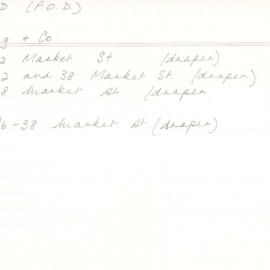 D (P.O.D.)
g + Co.
2 Market St (draper)
2 and 38 Market St. (draper)
8 Market St (draper
6-38 Market St. (draper)